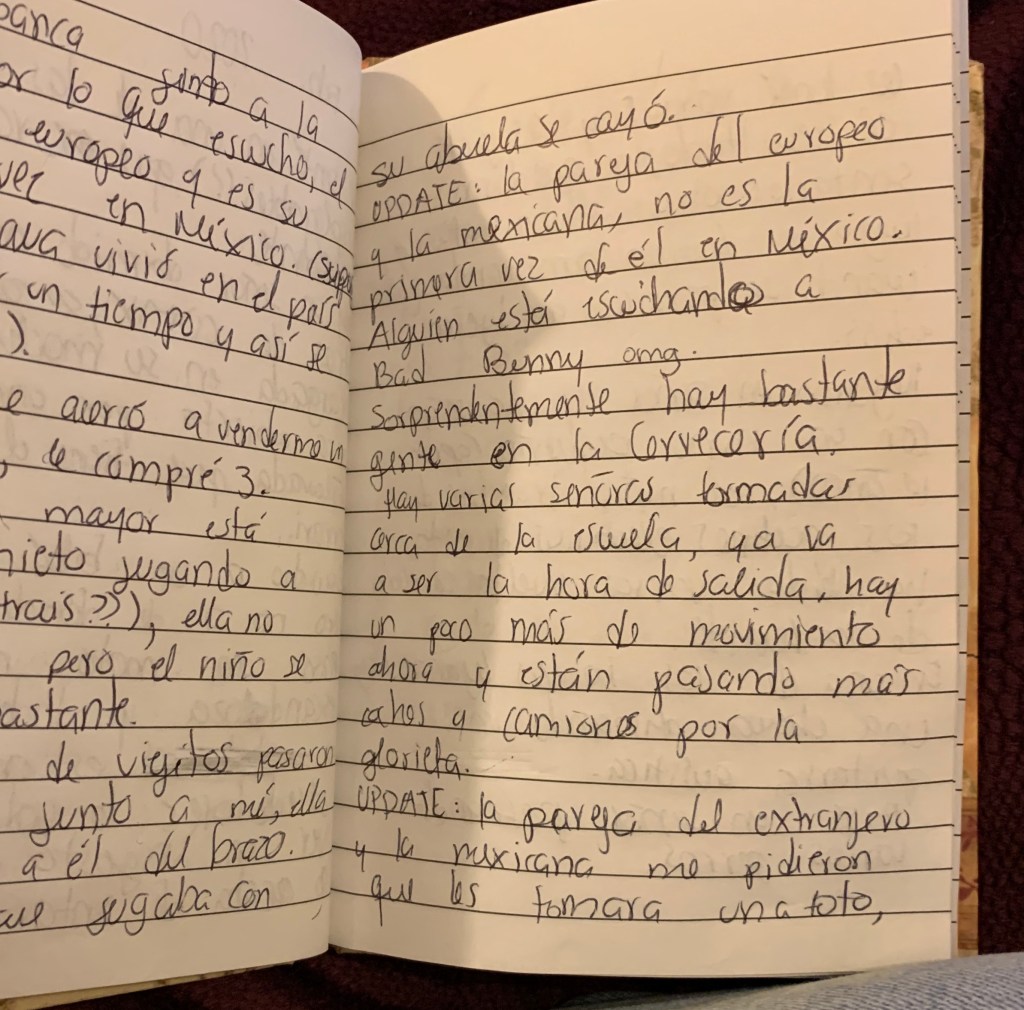 banca
junto a la
or lo que escucho, el
europeo y es su
vez en México. (supo
ava vivió en el país
un tiempo y así se
).
e acercó a venderme un
, le compré 3.
mayor está
nieto jugando a
trais??), ella no
pero el niño se
astante.
de viejitos pasaron
junto a mí, ella
a él del brazo.
que jugaba con
su abuela se cayó.
UPDATE: la pareja del europeo
y la mexicana, no es la
primera vez de él en México.
Alguien está escuchando a
Bad Bunny omg.
Sorprendentemente hay bastante
gente en la Cervecería.
Hay varias señoras formadas
cerca de la escuela, ya va
a ser la hora de salida, hay
un poco más de movimiento
ahora y están pasando más
coches y camiones por la
glorieta.
UPDATE: la pareja del extranjero
y la mexicana me pidieron
que les tomara una foto,